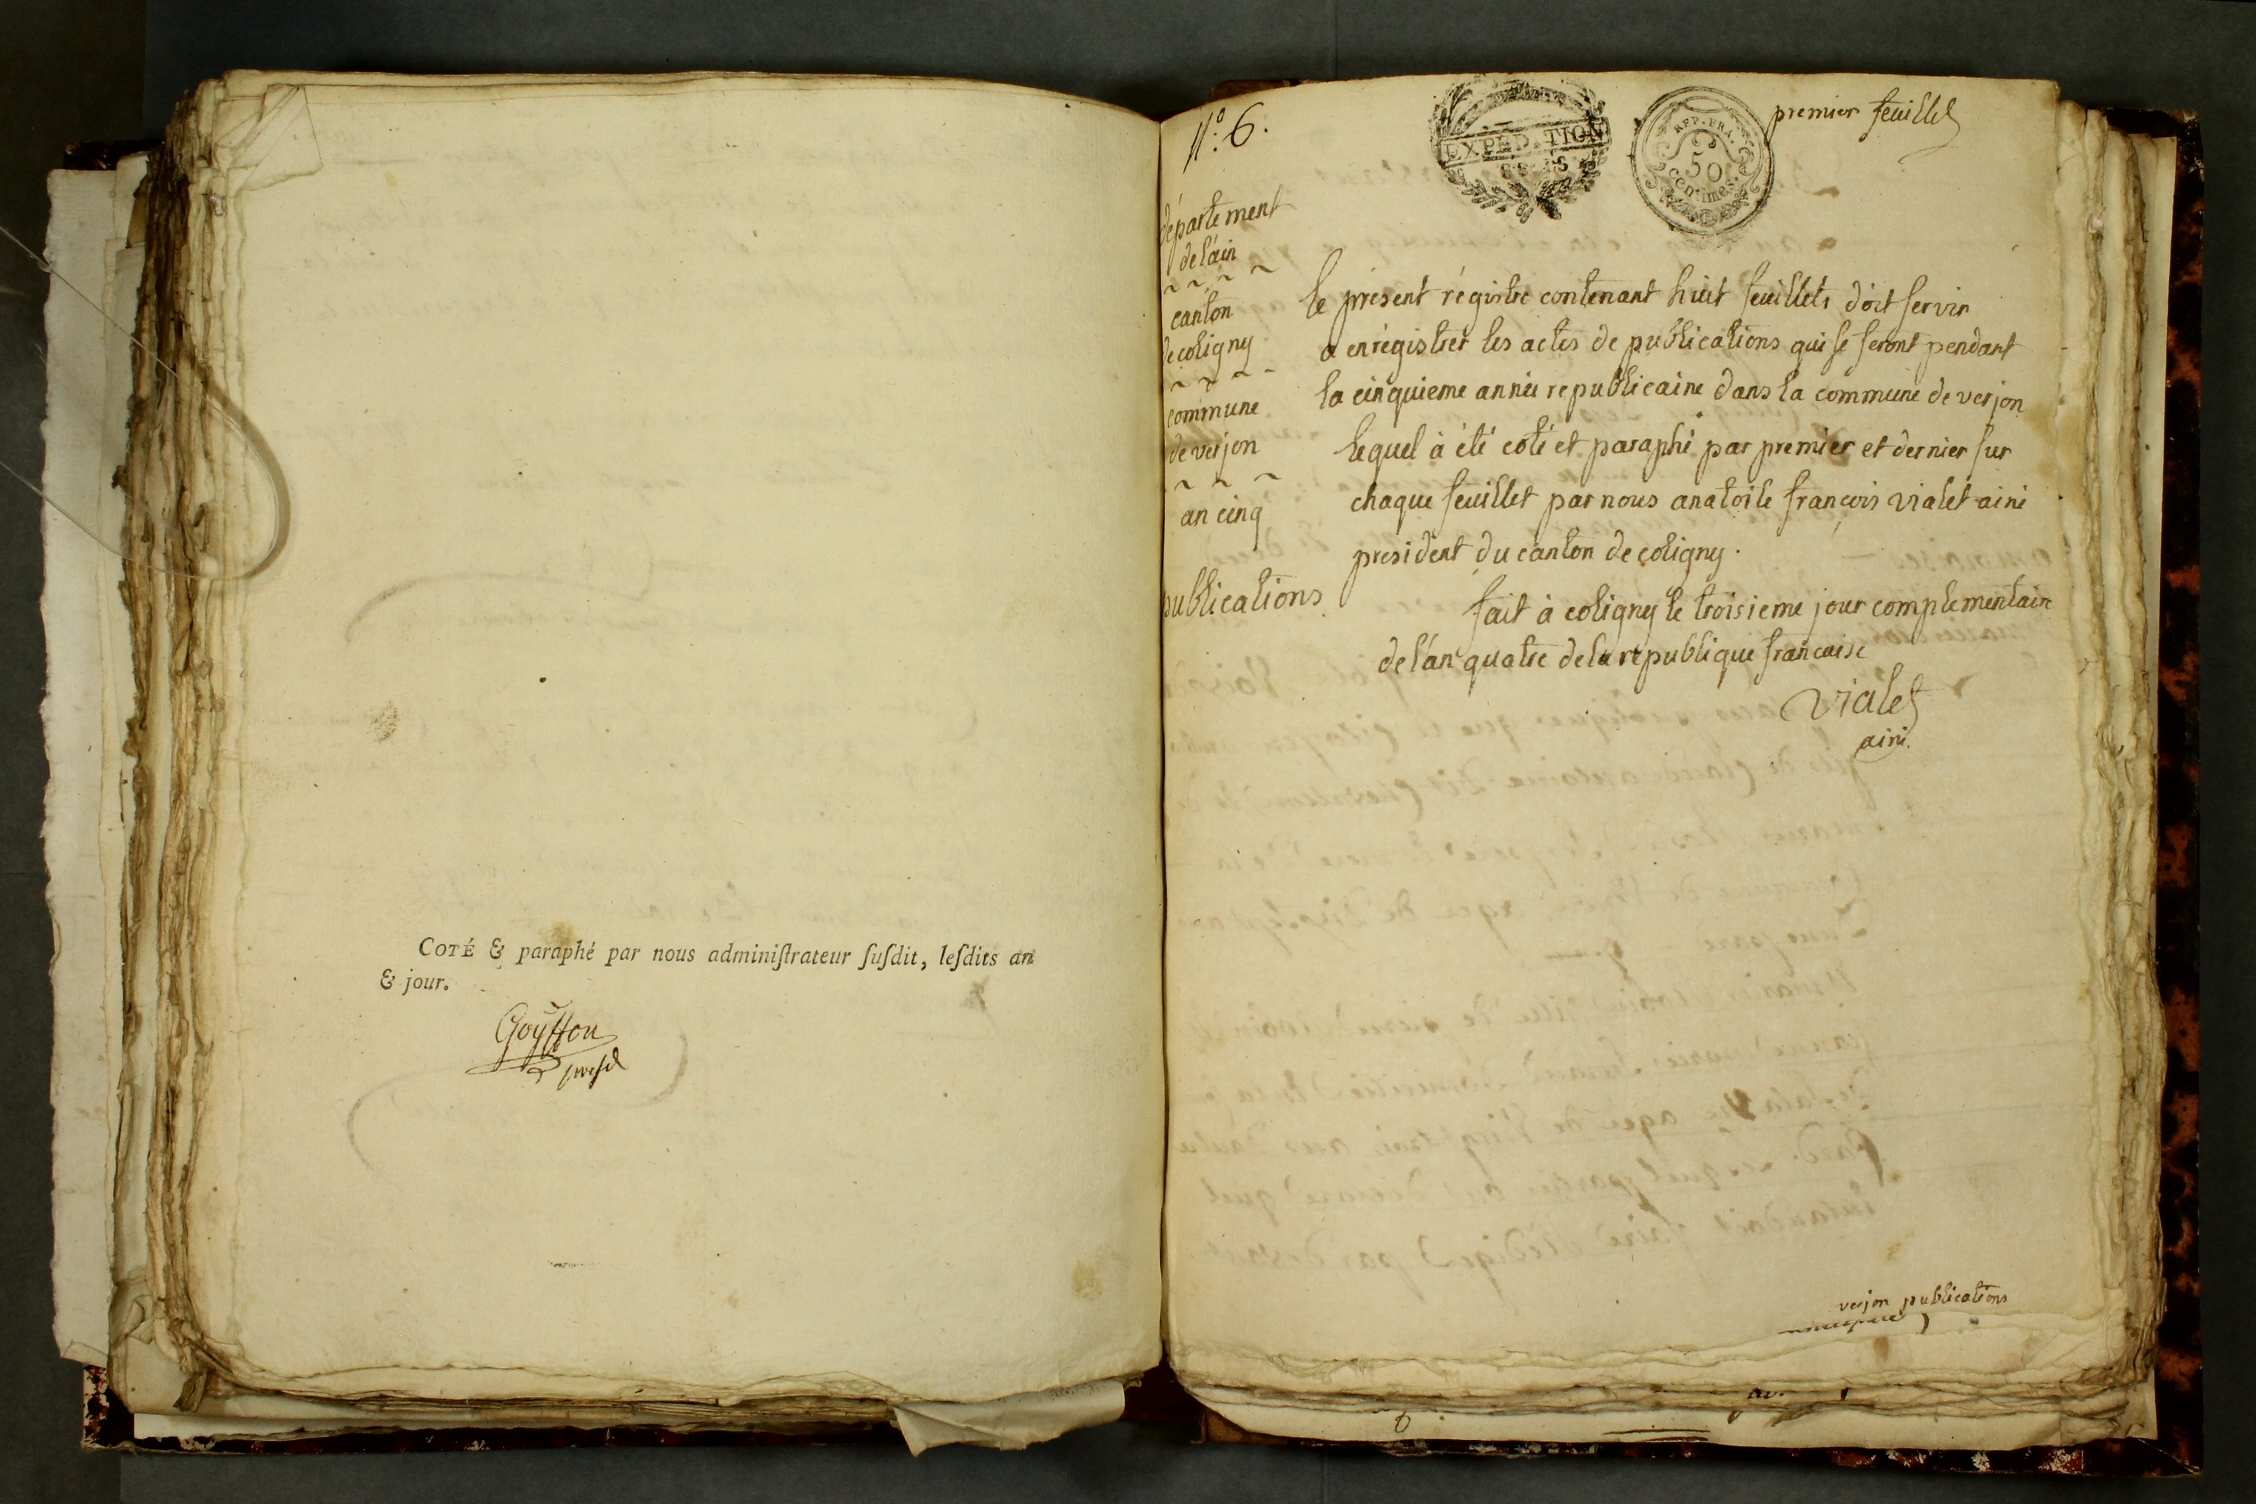 COTÉ & paraphé par nous adminiſtrateur ſuſdit, leſdits an
& jour.
Goyffon
presid
N.º 6.
EXPÉDITION
REP. FRA.
50
centimes.
premier feuillet
département
de l'ain
canton
de coligny
commune
de verjon
an cinq
publications
le présent régistre contenant huit feuillets doit servir
a enrégistrer les actes de publications qui se feront pendant
la cinquieme année republicaine dans la commune de verjon
lequel à été coté et paraphé par premier et dernier sur
chaque feuillet par nous anatoile francois vialet ainé
president du canton de coligny.
fait à coligny le troisieme jour complementaire
de l'an quatre de la republique francaise
vialet
ainé.
verjon publications